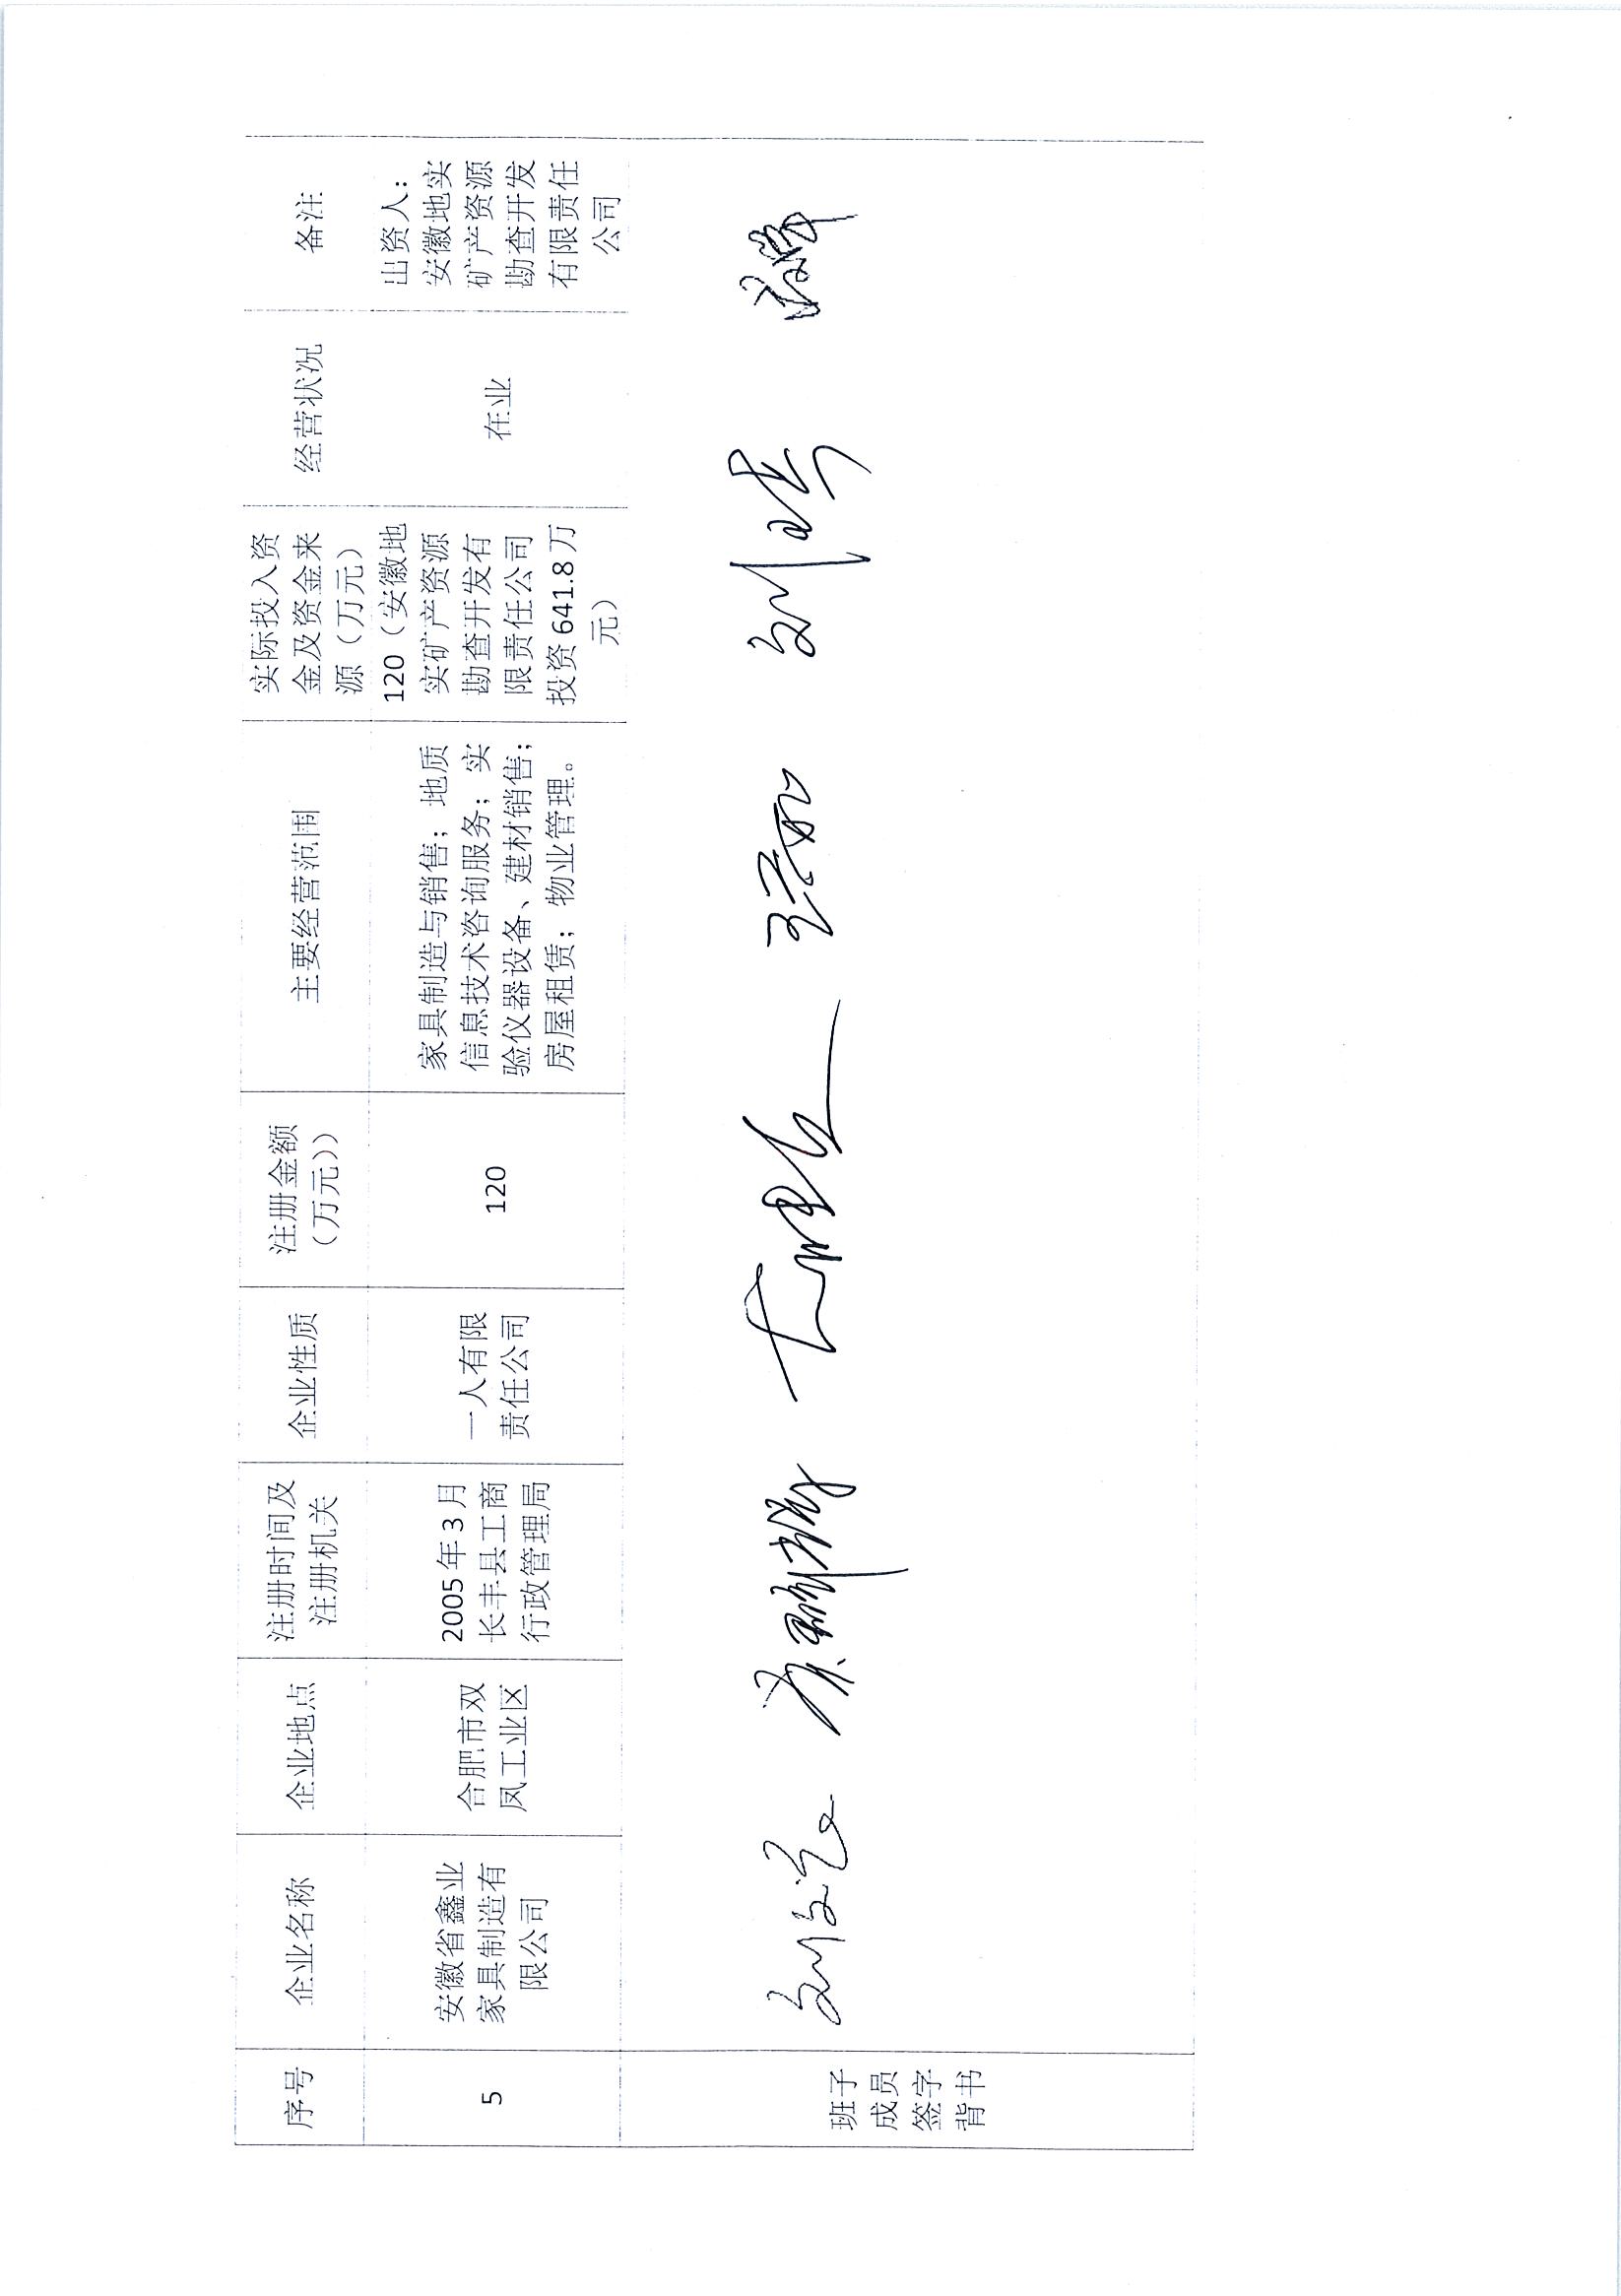 序号
企业名称
企业地点
注册时间及
注册机关
企业性质
注册金额
（万元））
主要经营范围
实际投入资
金及资金来
源（万元）
经营状况
备注
5
安徽省鑫业
家具制造有
限公司
合肥市双
凤工业区
2005 年 3 月
长丰县工商
行政管理局
一人有限
责任公司
120
家具制造与销售；地质
信息技术咨询服务；实
验仪器设备、建材销售；
房屋租赁；物业管理。
120（安徽地
实矿产资源
勘查开发有
限责任公司
投资 641.8 万
元）
在业
出资人：
安徽地实
矿产资源
勘查开发
有限责任
公司
班子
成员
签字
背书